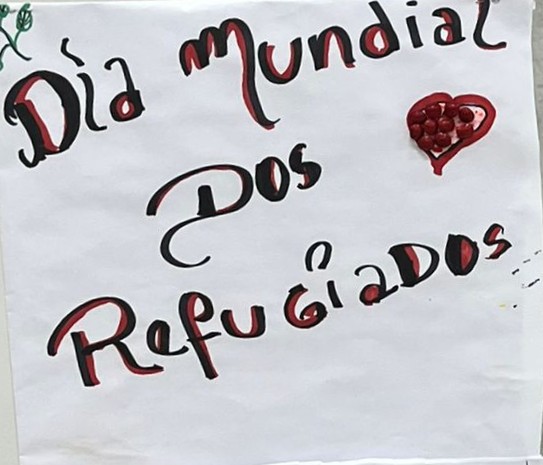 Día Mundial
Dos
Refugiados